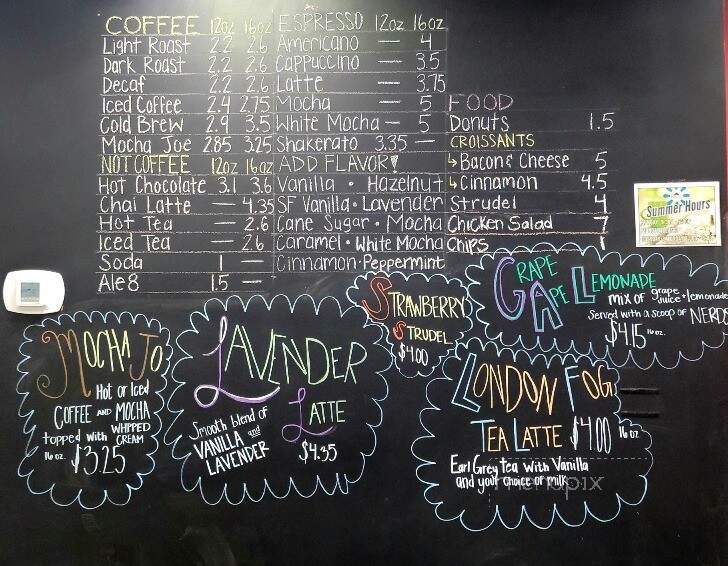 COFFEE 12oz 16oz
Light Roast 2.2 2.6
Dark Roast 2.2 2.6
Decaf 2.2 2.6
Iced Coffee 2.4 2.75
Cold Brew 2.9 3.5
Mocha Joe 2.85 3.25
NOT COFFEE 12oz 16oz
Hot Chocolate 3.1 3.6
Chai Latte — 4.35
Hot Tea — 2.6
Iced Tea — 2.6
Soda 1 —
Ale 8 1.5 —
ESPRESSO 12oz 16oz
Americano — 4
Cappuccino — 3.5
Latte — 3.75
Mocha — 5
White Mocha — 5
Shakerato 3.35 —
ADD FLAVOR!
Vanilla • Hazelnut
SF Vanilla • Lavender
Cane Sugar • Mocha
Caramel • White Mocha
Cinnamon • Peppermint
FOOD
Donuts 1.5
CROISSANTS
↳ Bacon & Cheese 5
↳ Cinnamon 4.5
Strudel 4
Chicken Salad 7
Chips 1
Summer Hours
MOCHA JO
Hot or Iced
COFFEE AND MOCHA
topped with WHIPPED CREAM
16 oz. $3.25
LAVENDER
LATTE
Smooth blend of
VANILLA and
LAVENDER
$4.35
STRAWBERRY
STRUDEL
$4.00
GRAPE
APE LEMONADE
mix of grape juice + lemonade
Served with a scoop of NERDS
$4.15 16oz.
LONDON FOG
TEA LATTE $4.00 16 oz
Earl Grey tea with Vanilla
and your choice of milk
menupix